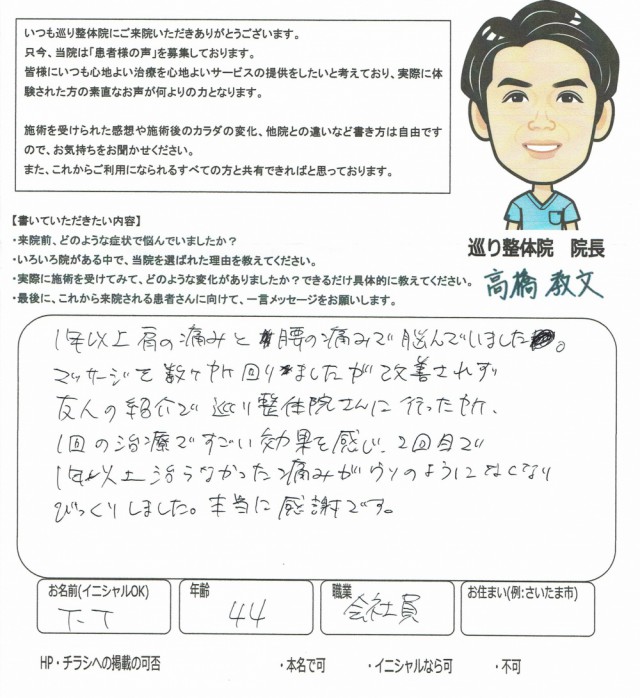 いつも巡り整体院にご来院いただきありがとうございます。
只今、当院は「患者様の声」を募集しております。
皆様にいつも心地よい治療を心地よいサービスの提供をしたいと考えており、実際に体
験された方の素直なお声が何よりの力となります。
施術を受けられた感想や施術後のカラダの変化、他院との違いなど書き方は自由です
ので、お気持ちをお聞かせください。
また、これからご利用になられるすべての方と共有できればと思っております。
【書いていただきたい内容】
・来院前、どのような症状で悩んでいましたか？
・いろいろ院がある中で、当院を選ばれた理由を教えてください。
・実際に施術を受けてみて、どのような変化がありましたか？できるだけ具体的に教えてください。
・最後に、これから来院される患者さんに向けて、一言メッセージをお願いします。
巡り整体院　院長
高橋 教文
1年以上肩の痛みと腰の痛みで悩んでいました。
マッサージを数ヶ所回りましたが改善されず
友人の紹介で巡り整体院さんに行った所、
1回の治療ですごい効果を感じ、2回目で
1年以上治らなかった痛みがウソのようになくなり
びっくりしました。本当に感謝です。
お名前(イニシャルOK)
T.T
年齢
44
職業
会社員
お住まい(例:さいたま市)
HP・チラシへの掲載の可否　・本名で可　・イニシャルなら可　・不可